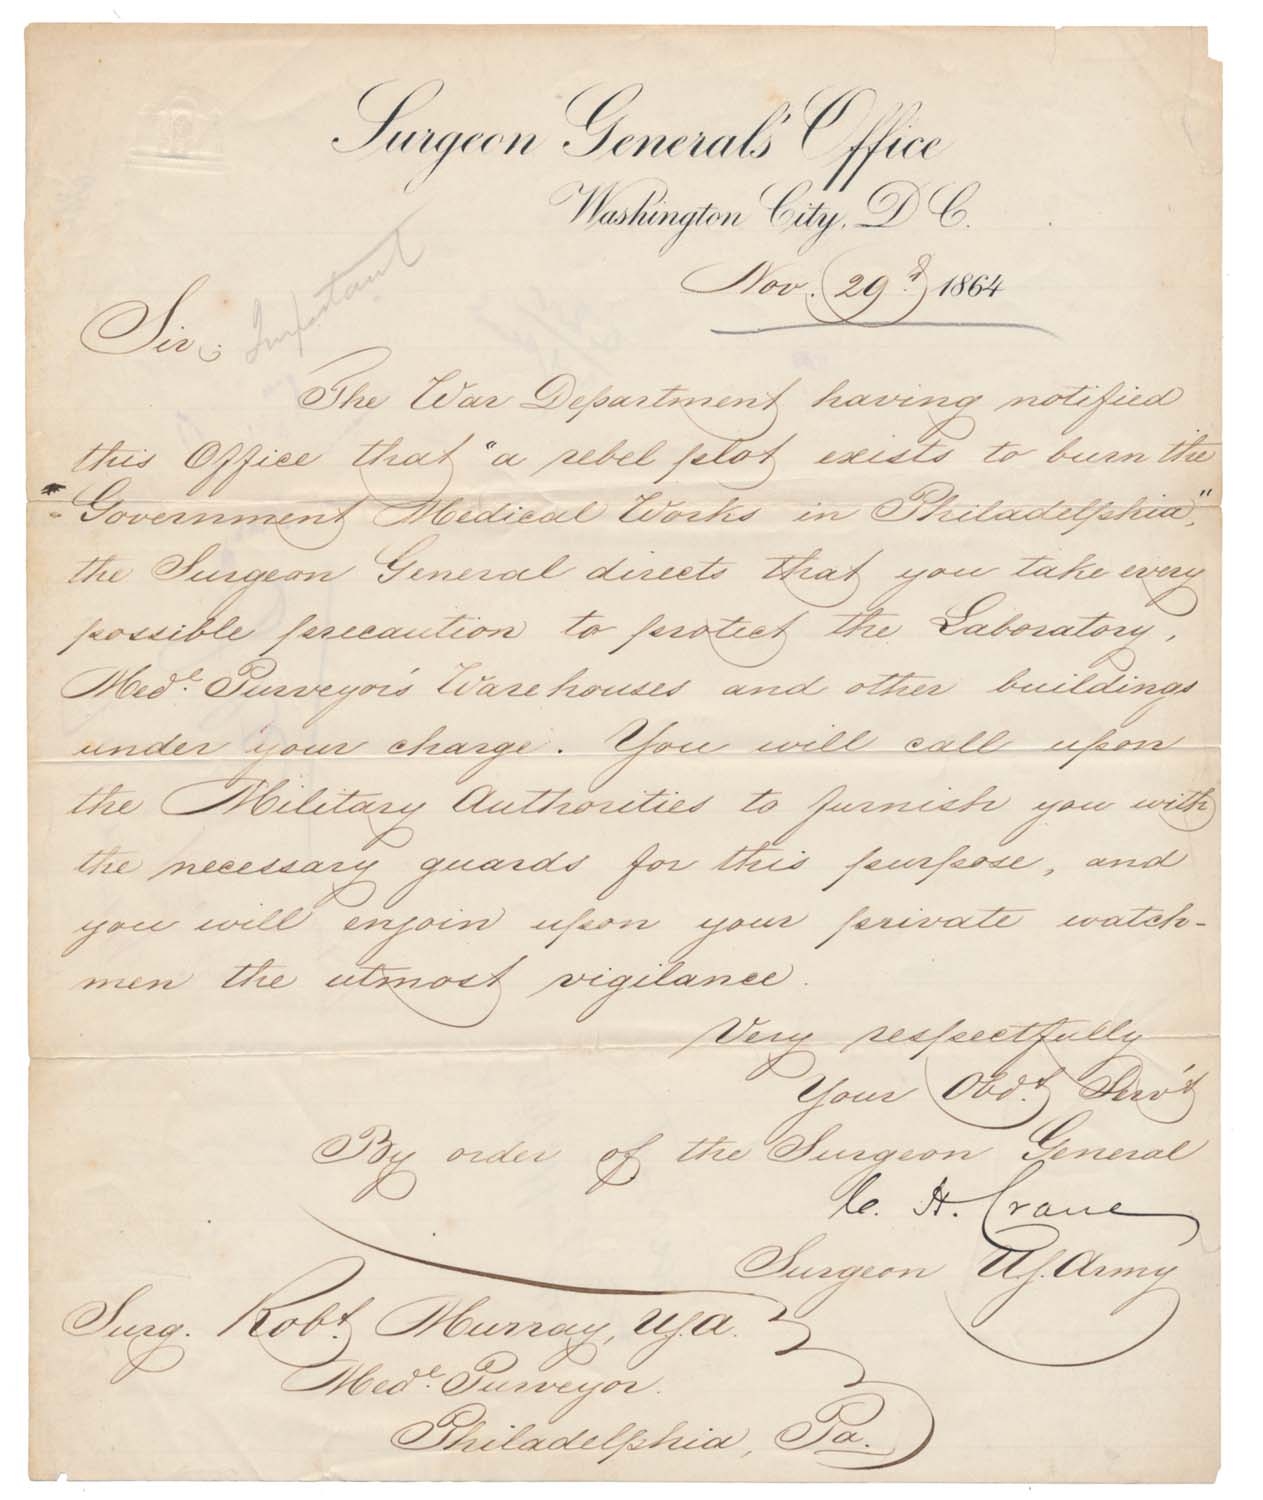 Surgeon Generals' Office
Washington City, D C.
Nov. 29th 1864
Sir: Important
The War Department having notified
this Office that "a rebel plot exists to burn the
"Government Medical Works in Philadelphia",
the Surgeon General directs that you take every
possible precaution to protect the Laboratory,
Medl. Purveyor's Warehouses and other buildings
under your charge. You will call upon
the Military Authorities to furnish you with
the necessary guards for this purpose, and
you will enjoin upon your private watch-
men the utmost vigilance.
Very respectfully
Your Obdt. Serv't
By order of the Surgeon General
C. H. Crane
Surgeon U.S. Army
Surg. Robt. Murray, U.S.A.
Medl. Purveyor.
Philadelphia, Pa.